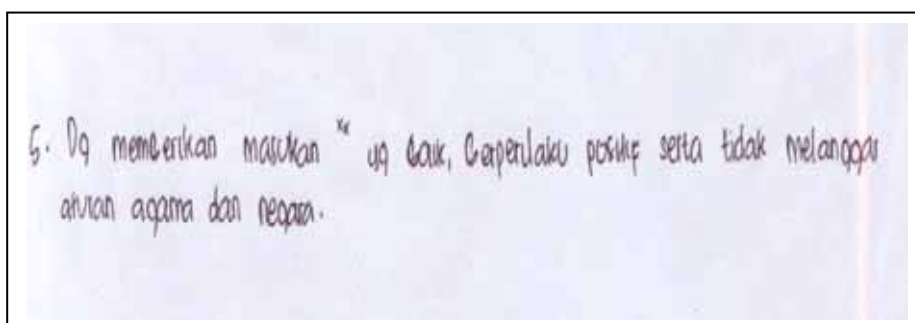 5. Dg memberikan masukan" yg baik, berperilaku positif serta tidak melanggar
aturan agama dan negara.